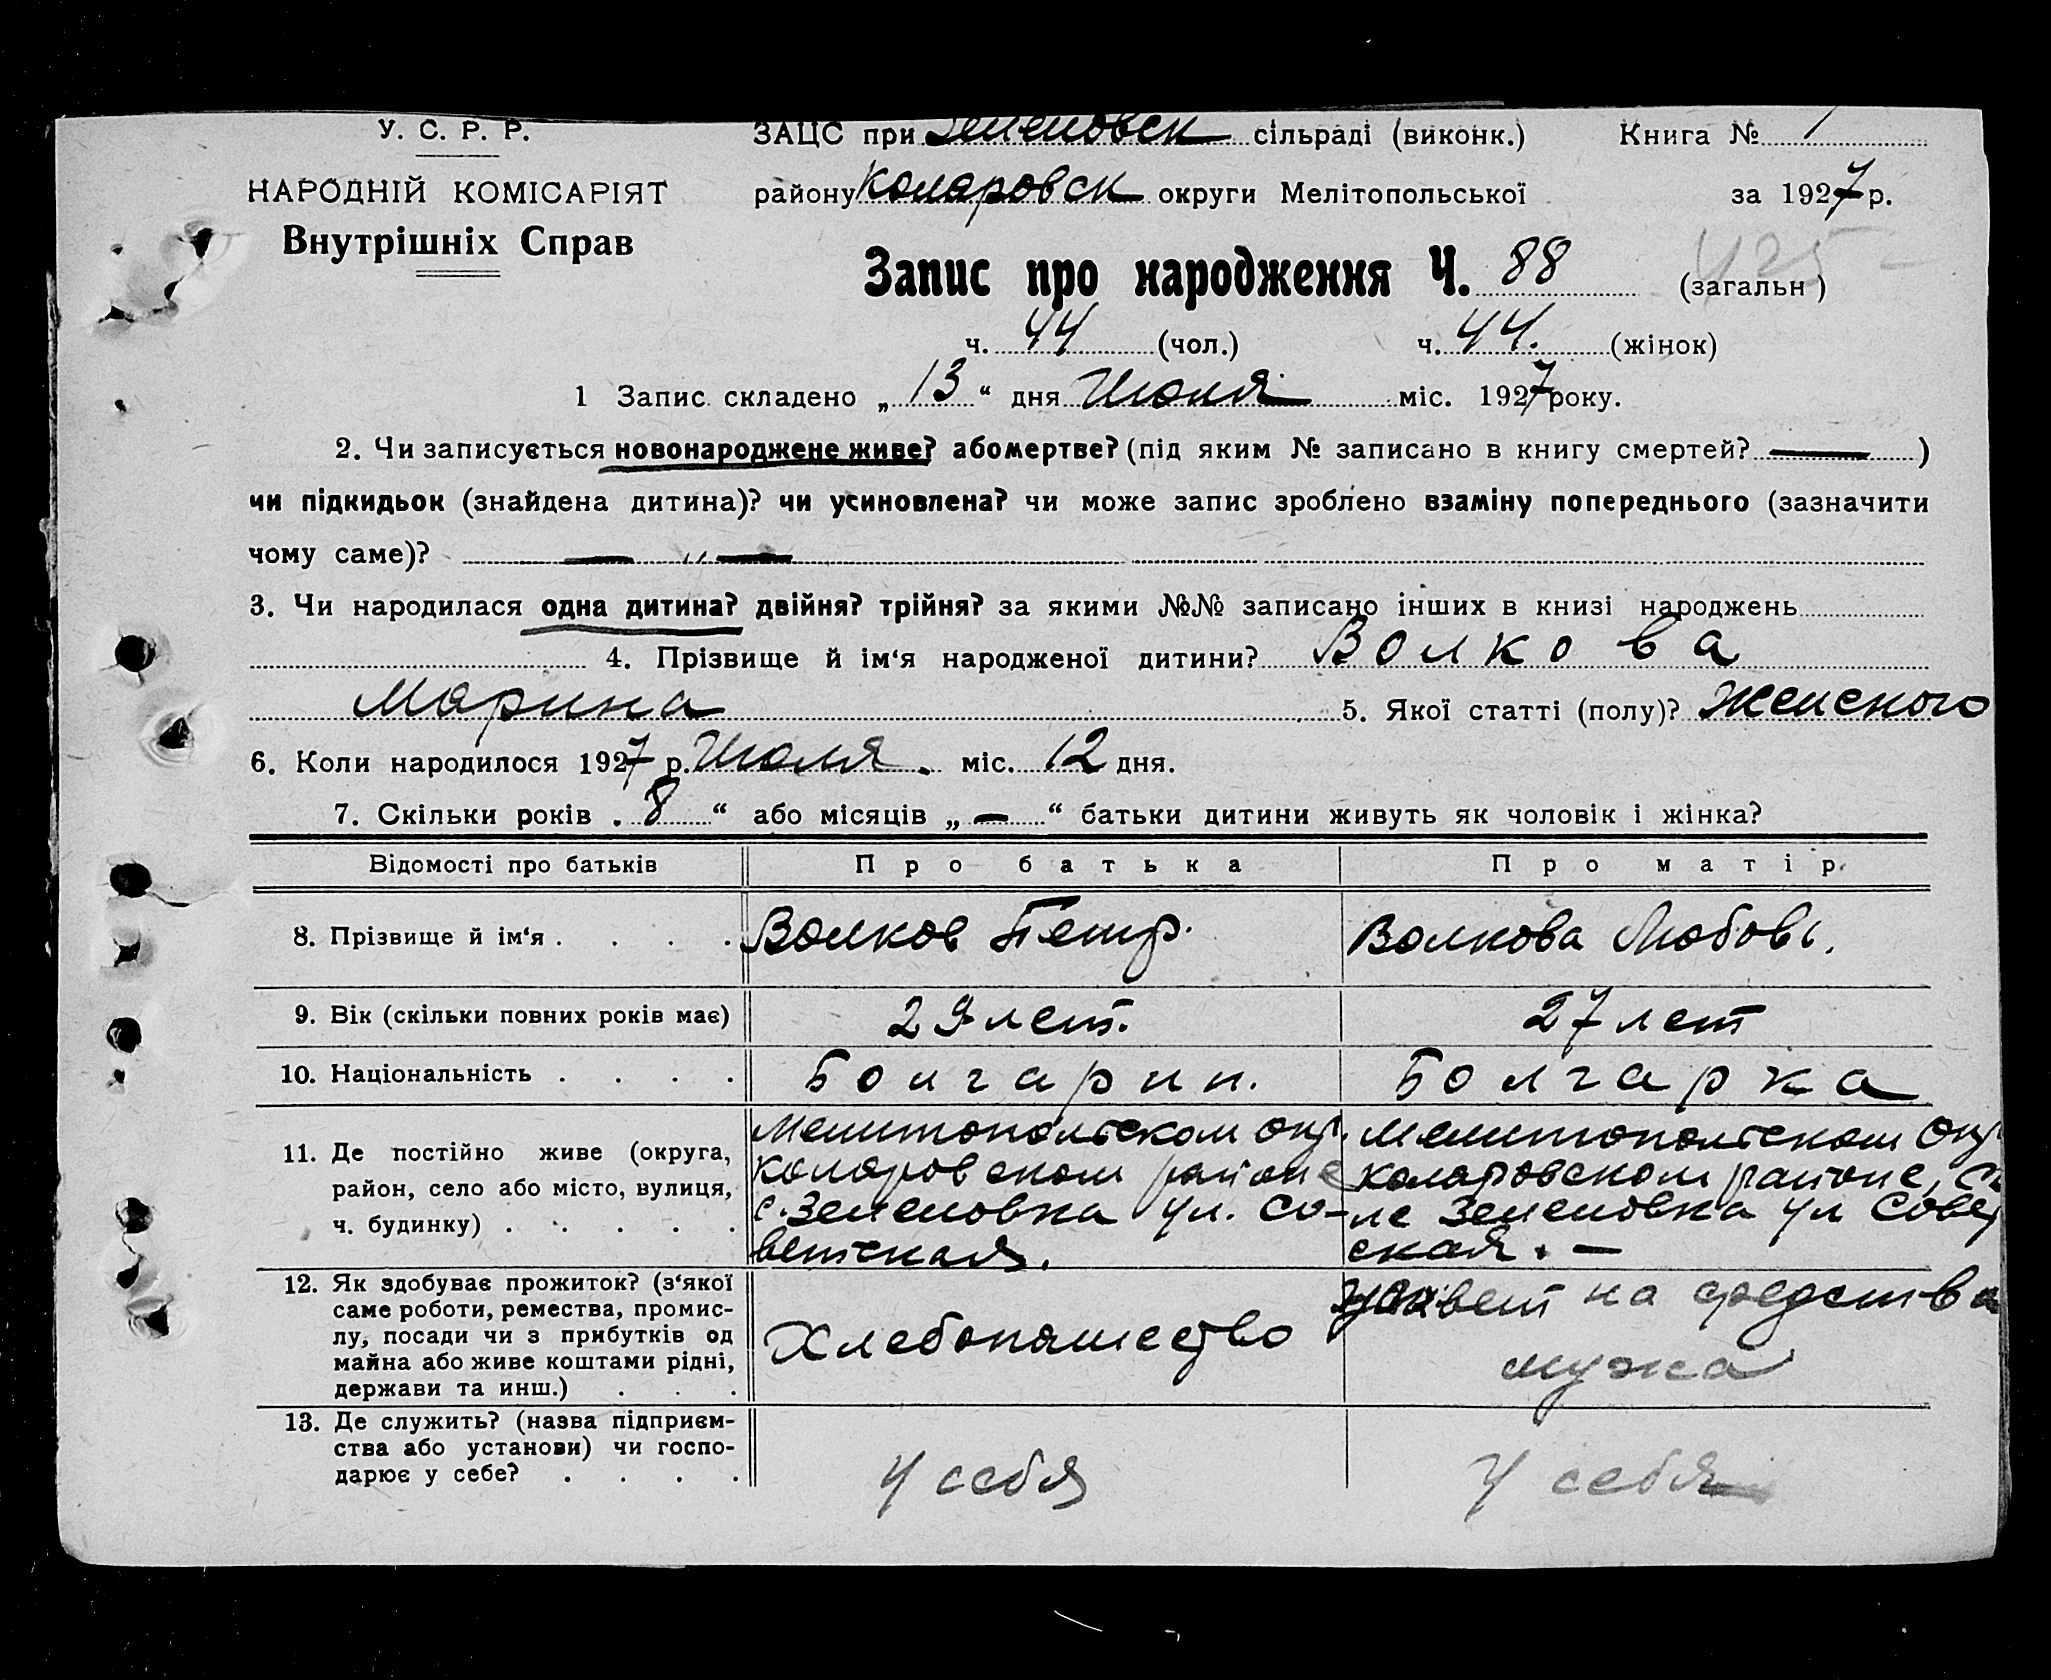 У. С. Р. Р.
ЗАЦС при Зеленовск сільраді (виконк.) Книга № 1
НАРОДНІЙ КОМІСАРІЯТ району Коларовск округи Мелітопольської за 1927 р.
Внутрішніх Справ
Запис про народження Ч. 88 (загальн) 425
ч. 44 (чол.) ч. 44. (жінок)
1 Запис складено „13“ дня Июля міс. 1927 року.
2. Чи записується новонароджене живе? або мертве? (під яким № записано в книгу смертей? — )
чи підкидьок (знайдена дитина)? чи усиновлена? чи може запис зроблено взаміну попереднього (зазначити
чому саме)? — „ —
3. Чи народилася одна дитина? двійня? трійня? за якими №№ записано інших в книзі народжень
4. Прізвище й ім‘я народженої дитини? Волкова
Марина 5. Якої статті (полу)? Женского
6. Коли народилося 1927 р. Июля. міс. 12 дня.
7. Скільки років „8“ або місяців „—“ батьки дитини живуть як чоловік і жінка?
Відомості про батьків Про батька Про матір
8. Прізвище й ім‘я . . . . Волков Петр. Волкова Любовь.
9. Вік (скільки повних років має) 29 лет. 27 лет
10. Національність . . . . Болгарин. Болгарка
11. Де постійно живе (округа,
район, село або місто, вулиця,
ч. будинку) . . . . .
Мелитопольском окр.
Коларовском районе
с. Зеленовка ул. Со-
ветская.
Мелитопольском окр
Коларовском районе, се
ле Зеленовка ул Совет
ская. —
12. Як здобуває прожиток? (з‘якої
саме роботи, ремества, промис-
лу, посади чи з прибутків од
майна або живе коштами рідні,
держави та инш.) . . .
Хлебопашество
живет на средства
мужа
13. Де служить? (назва підприєм-
ства або установи) чи госпо-
дарює у себе? . . . .
У себя
У себя